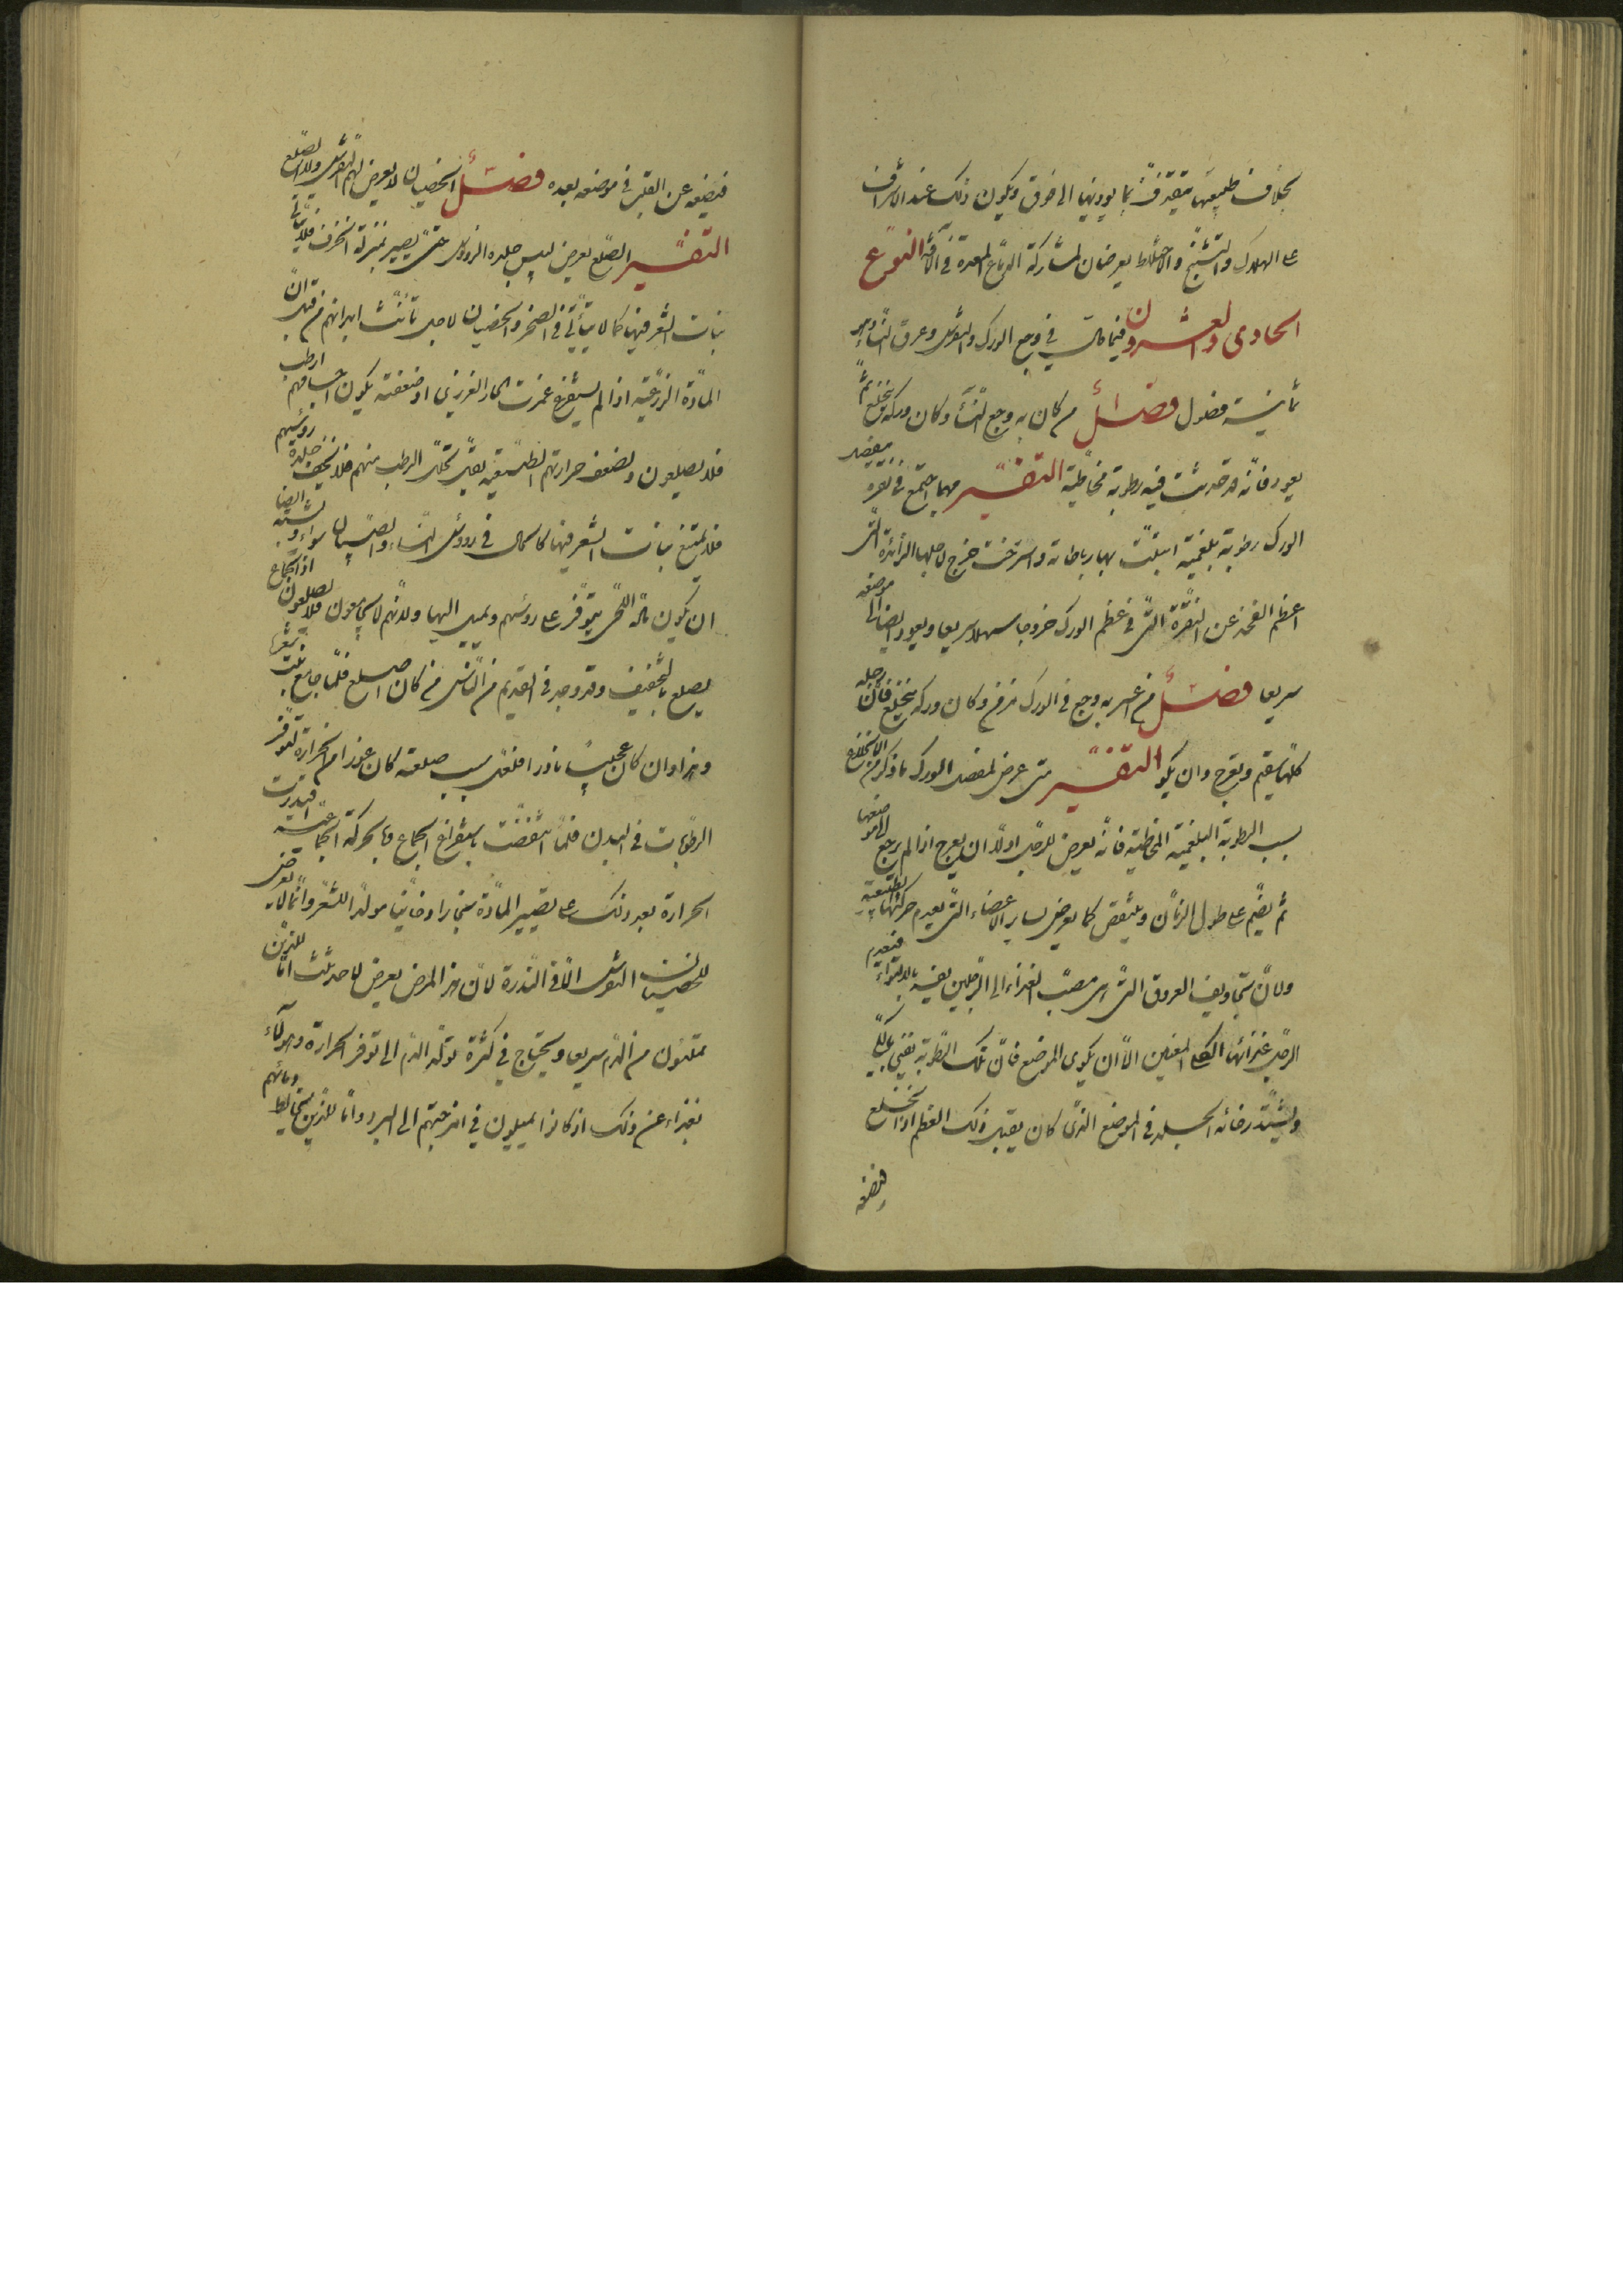 بخلاف طبيعتها يتقذف بما يوذيها الى فوق ويكون ذلك عند الاشراف
على الهلاك والتشنج والاختلاط يعرضان لمشاركة الدماغ المعدة فى الآفة النوع
الحادى والعشرون فيما قال فى وجع الورك والنقرس وعرق النساء وهو
ثمانية فصول فصل من كان به وجع النسا وكان وركه ينخلع ثم
يعود فانه قد حدثت فيه رطوبة مخاطية التفسير مهما اجتمع فى نقرة مفصل
الورك رطوبة بلغمية ابتلت بها رباطاته واسترخت خرج لاجلها الزائدة التى
اعظم الفخذ عن النقرة التى فى عظم الورك خروجا سهلا سريعا ويعود ايضا الى موضعه
سريعا فصل من اعتراه وجع فى الورك مزمن وكان وركه ينخلع فان رجله
كلها يسقم ويعرج وان يكو التفسير متى عرض لمفصل الورك ما ذكر من الانخلاع
بسبب الرطوبة البلغمية المخاطية فانه يعرض للرجل اولا ان يعرج اذا لم يرجع الى موضعها
ثم يضم على طول الزمان وينقص كما يعرض لسائر الاعضاء التى يعدم حركتها الطبيعية
ولان تجاويف العروق التى هى مصب الغذاء الى الرجلين يضيق بالالتواء فيعدم
الرجل غذائها الا ان يكوى الموضع فان تلك الرطوبة يفنى بالكى
ويشتد رخاوة الجلد فى الموضع الذى كان يقبل ذلك العظم اذا انخلع
فيمنعه
فيمنعه عن القبل فى موضعه بعده فصل الخصيان لا يعرض لهم النقرس ولا الصلع
التفسير الصلع يعرض ليبس جلدة الرووس حتى يصير بمنزلة الخزف فلا يتأتى
نبات الشعر فيها كما لا يتأتى فى الصخر والخصيان لاجل تأنث ابدانهم من قبل ان
المادة الزرعية اذا لم يستفرغ غمرت الحار الغريزى او ضعفته يكون اجسامهم ارطب
فلا يصلعون ولضعف حرارتهم الطبيعية يقل تحلل الرطب منهم فلا يجف جلدة روسهم
فلا يمتنع نبات الشعر فيها كالحال فى رووس النساء والصبيان سواء ويشبه ايضا
ان يكون مادة المنى يتوفر على روسهم وتميل اليها ولانهم لا يجامعون فلا يصلعون اذ الجماع
يصلع بالتجفيف وقد وجد فى القديم من الناس من كان اصلع فلما جامع نبت شعره
وهذا وان كان عجيبا نادرا فلعل سبب صلعته كان عوز الحرارة لتوفر
الرطوبات فى البدن فلما انتقصت باستفراغ الجماع وبالحركة الجماعية اقتدرت
الحرارة بعد ذلك على تصيير المادة بخارا دخانيا مولدا للشعر وانما لا يعرض
للخصيان النقرس الا فى الندرة لان هذا المرض يعرض لاحد ثلث اما للذين
يمتلئون من الدم سريعا ويحتاج فى كثرة تولد الدم الى توفر الحرارة وهولاء
بعداء عن ذلك اذ كانوا يميلون فى امزجتهم الى البرد واما للذين يخالط دمائهم